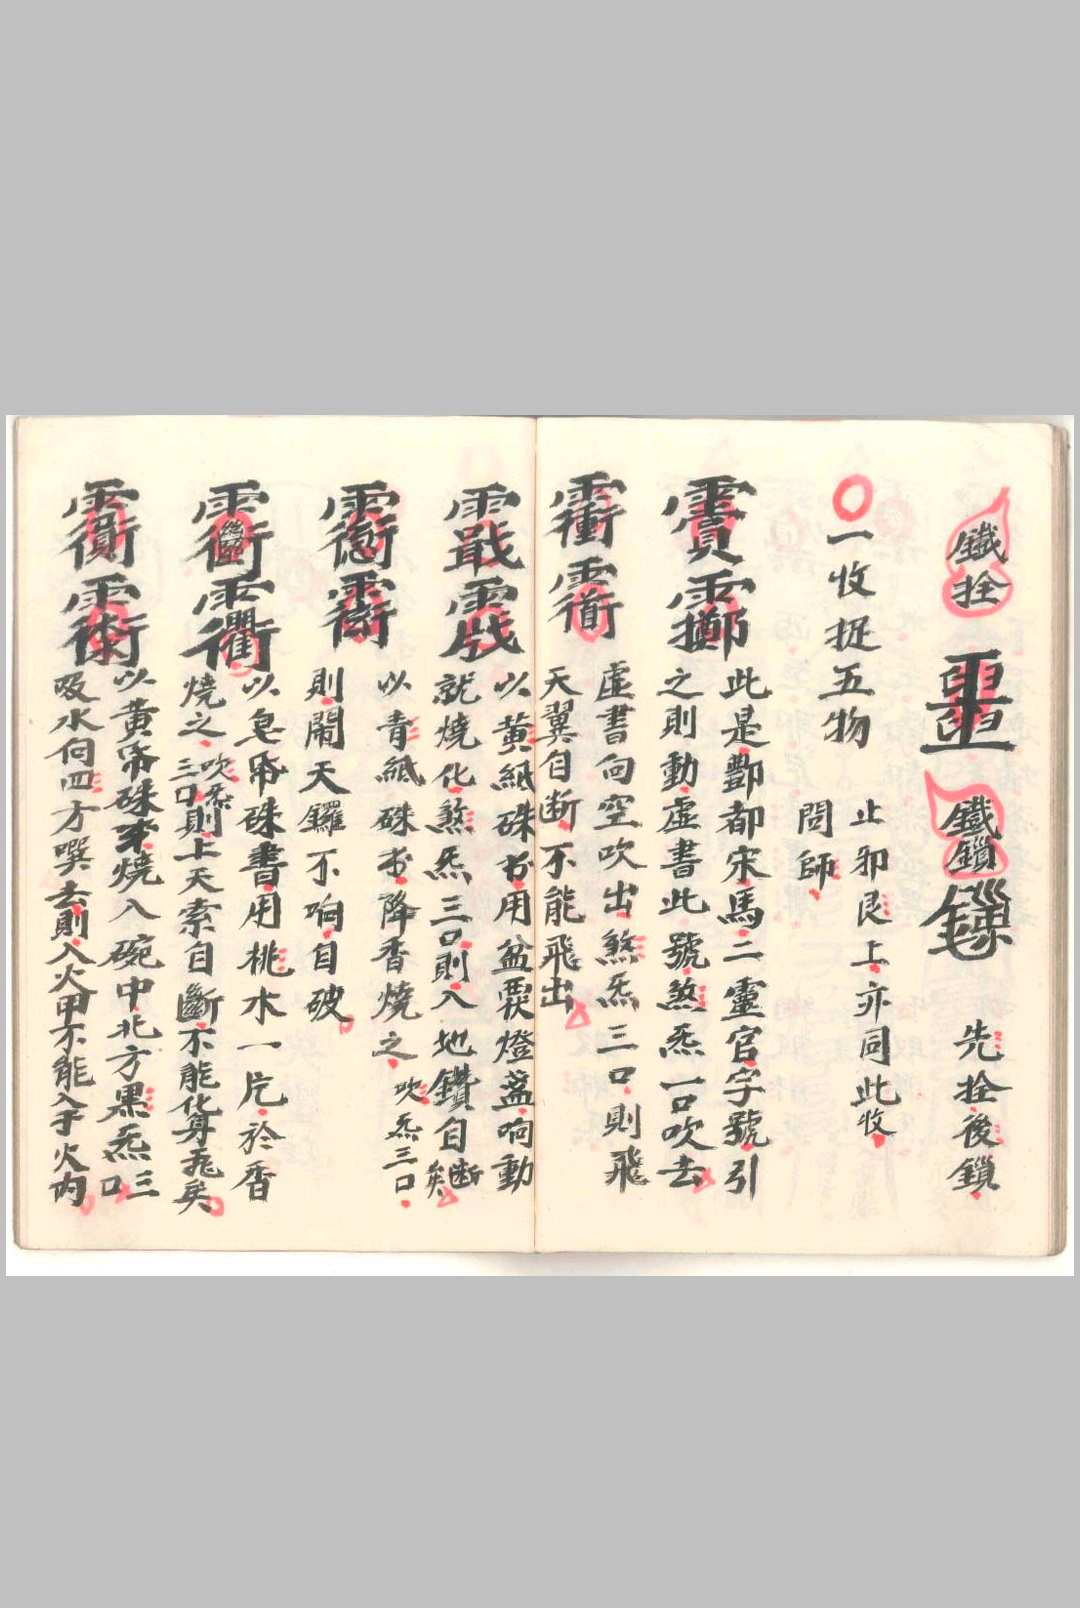 鐵拴 鐵鎖 先拴後鎖
一收捉五物
止邪艮上亦同此收
問師
此是酆都宋馬二靈官字號引
之則動虛書此號煞炁一口吹去
虛書向空吹出煞炁三口則飛
天翼自断不能飛出
以黃紙硃书用盆覆燈盞响動
就燒化煞炁三口則入地鑽自断矣
以青紙硃书降香燒之吹炁三口
則鬧天鑼不响自破
以皂帋硃書用桃水一片於香
燒之吹炁三口則上天索自斷不能化身飛矣
以黃帋硃書燒入碗中北方黑炁三口
吸水向四方噀去則入火甲不能入于火内